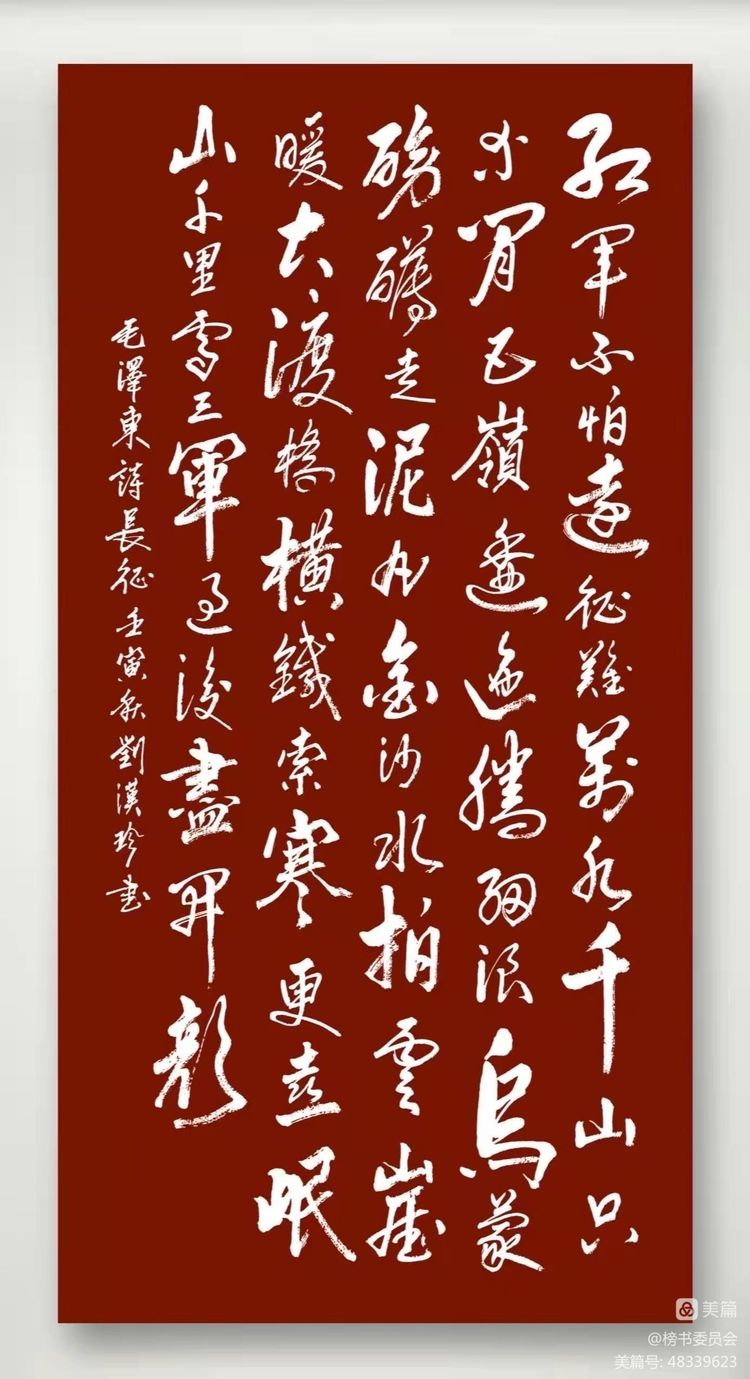 红军不怕遠征難萬水千山只
等閒五嶺逶迤騰細浪烏蒙
磅礴走泥丸金沙水拍雲崖
暖大渡橋橫鐵索寒更喜岷
山千里雪三軍過後盡開顏
毛澤東詩長征壬寅秋劉漢珍書
美篇
@榜书委员会
美篇号: 48339623